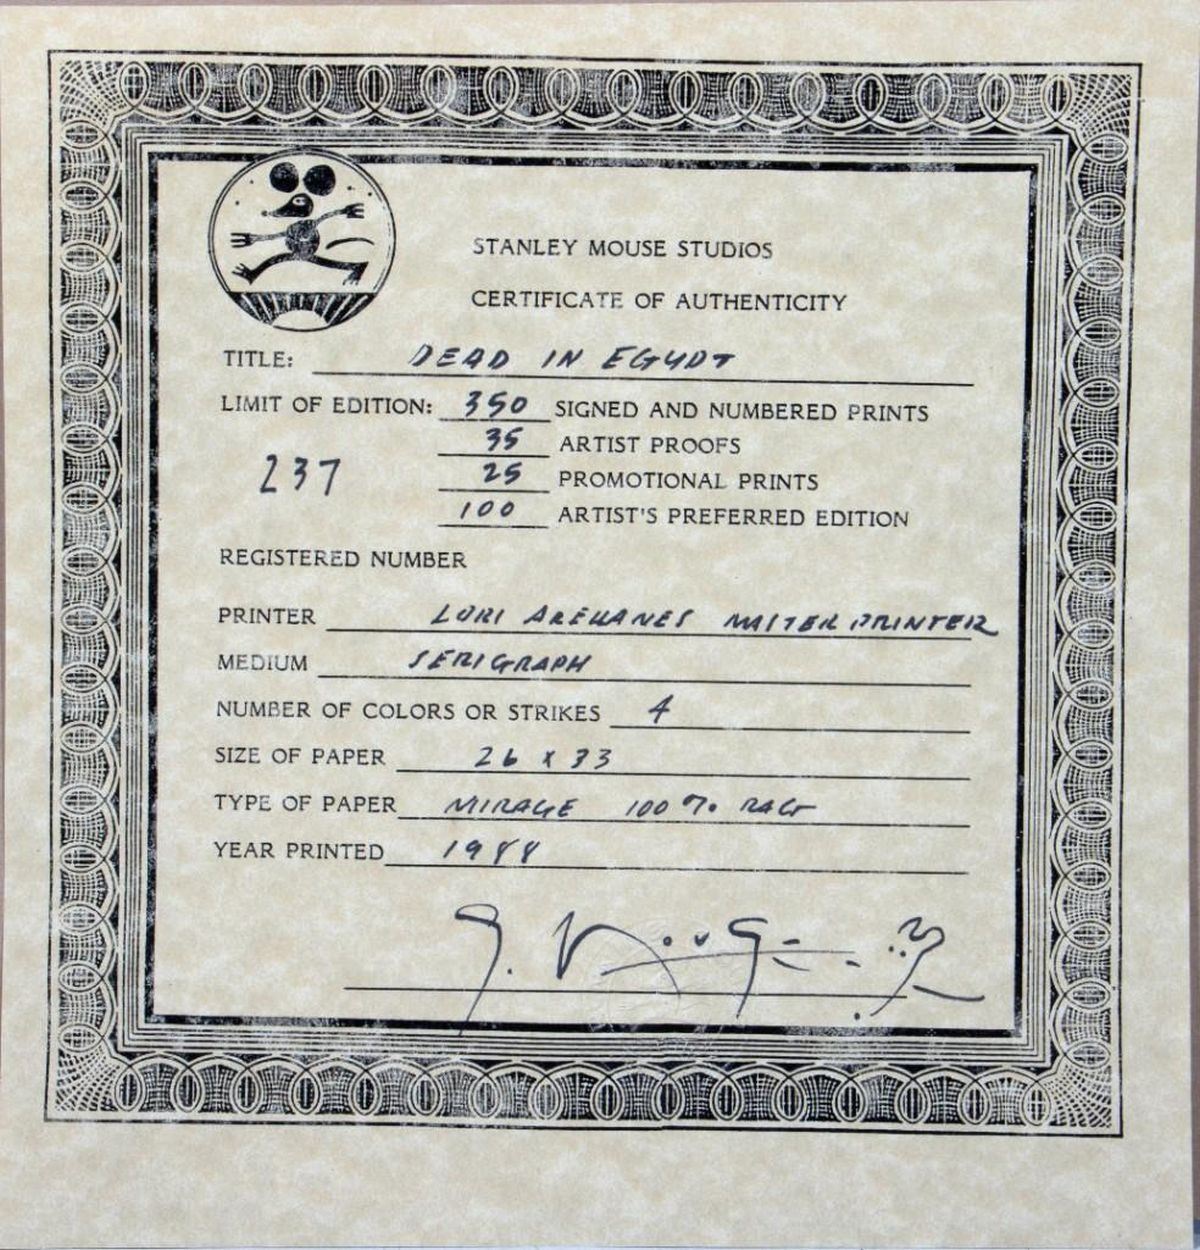 STANLEY MOUSE STUDIOS
CERTIFICATE OF AUTHENTICITY
TITLE: DEAD IN EGYPT
LIMIT OF EDITION: 350 SIGNED AND NUMBERED PRINTS
35 ARTIST PROOFS
237
25 PROMOTIONAL PRINTS
100 ARTIST'S PREFERRED EDITION
REGISTERED NUMBER
PRINTER LORI MASTER PRINTER
MEDIUM SERIGRAPH
NUMBER OF COLORS OR STRIKES 4
SIZE OF PAPER 26 x 33
TYPE OF PAPER MIRAGE 100% RAG
YEAR PRINTED 1988